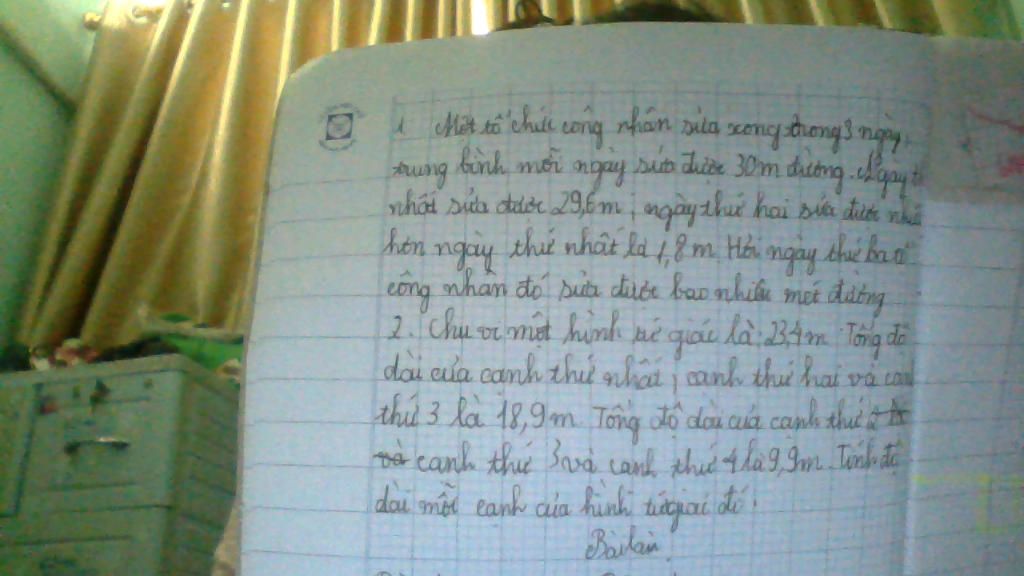 1 Một tổ chức công nhân sửa xong trong 3 ngày,
trung bình mỗi ngày sửa được 30m đường. Ngày
nhất sửa được 29,6m, ngày thứ hai sửa được
hơn ngày thứ nhất là 1,8m. Hỏi ngày thứ ba
công nhân đó sửa được bao nhiêu mét đường
2. Chu vi một hình tứ giác là 23,4m Tổng độ
dài của cạnh thứ nhất, cạnh thứ hai và
thứ 3 là 18,9m Tổng độ dài của cạnh thứ
và cạnh thứ 3 và cạnh thứ 4 là 9,9m. Tính độ
dài mỗi cạnh của hình tứ giác đó.
Bài làm